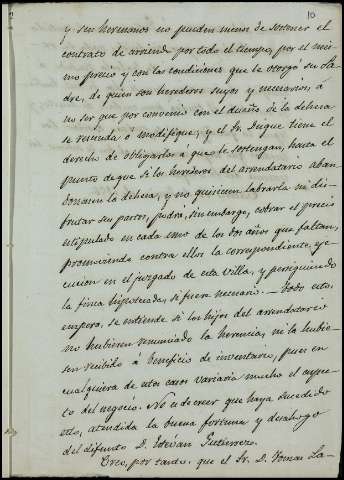 10
y sus hermanos no pueden menos de sostener el
contrato de arriendo por todo el tiempo, por el mis-
mo precio y con las condiciones que le otorgó su Pa-
dre, de quien son herederos suyos y necesarios, á
no ser que por convenio con el dueño de la dehesa
se rescinda ó modifique; y el Sr. Duque tiene el
derecho de obligarlos á que le sostengan, hasta el
punto de que si los herederos del arrendatario aban-
donasen la dehesa, y no quisiesen labrarla ni dis-
frutar sus pastos, podrá, sin embargo, cobrar el precio
estipulado en cada uno de los dos años que faltan,
promoviendo contra ellos la correspondiente eje-
cucion en el juzgado de esta villa, y persiguiendo
la finca hipotecada, si fuera necesario. — Todo esto,
empero, se entiende si los hijos del arrendatario
no hubiesen renunciado la herencia, ni la hubie-
sen recibido á beneficio de inventario, pues en
cualquiera de estos casos variaria mucho el aspec-
to del negocio. No es de creer que haya sucedido
esto, atendida la buena fortuna y desahogo
del difunto D. Estévan Gutierrez.
Creo, por tanto, que el Sr. D. Tomas La-